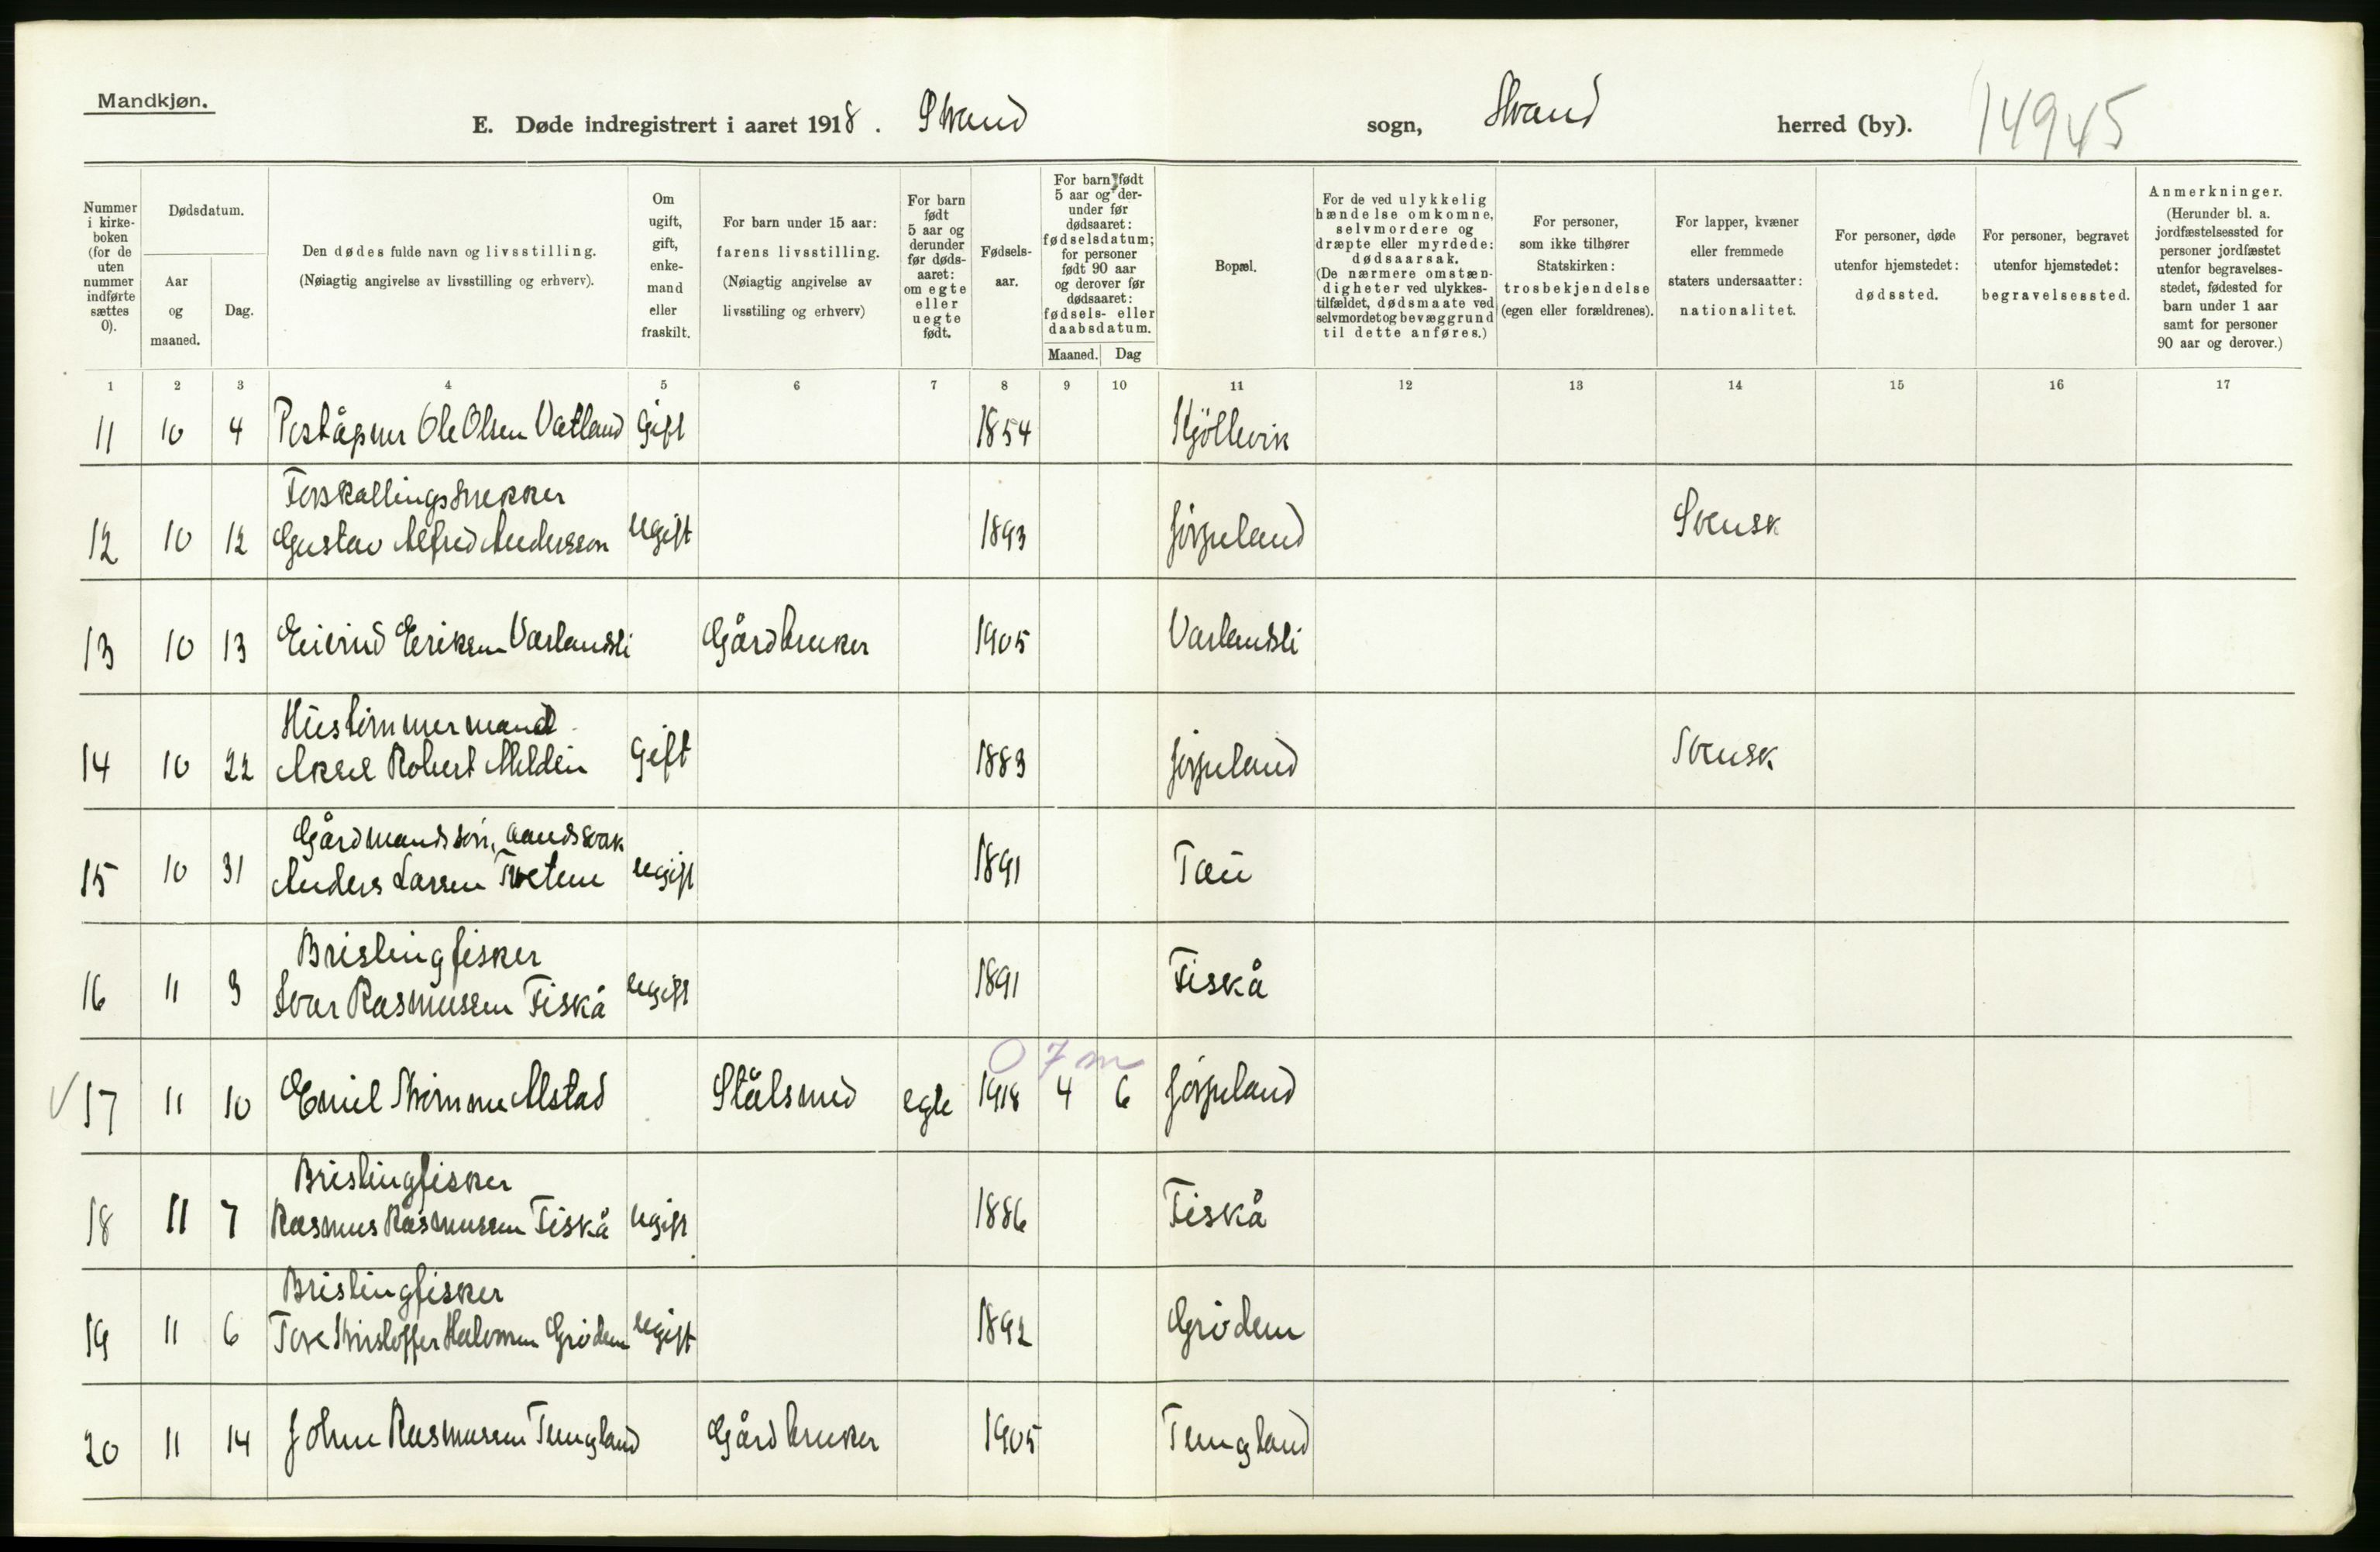 Mandkjøn.
E. Døde indregistrert i aaret 1918. Strand sogn, Strand herred (by). 14945
Nummer i kirkeboken (for de uten nummer indførte sættes 0).
Dødsdatum.
Aar og maaned.
Dag.
Den dødes fulde navn og livsstilling.
(Nøiagtig angivelse av livsstilling og erhverv).
Om ugift, gift, enkemand eller fraskilt.
For barn under 15 aar: farens livsstilling.
(Nøiagtig angivelse av livsstiling og erhverv)
For barn født 5 aar og derunder før dødsaaret: om egte eller uegte født.
Fødselsaar.
For barn født 5 aar og derunder før dødsaaret: fødselsdatum; for personer født 90 aar og derover før dødsaaret: fødsels- eller daabsdatum.
Maaned. Dag
Bopæl.
For de ved ulykkelig hændelse omkomne, selvmordere og dræpte eller myrdede: dødsaarsak.
(De nærmere omstændigheter ved ulykkestilfældet, dødsmaate ved selvmordet og bevæggrund til dette anføres.)
For personer, som ikke tilhører Statskirken: trosbekjendelse (egen eller forældrenes).
For lapper, kvæner eller fremmede staters undersaatter: nationalitet.
For personer, døde utenfor hjemstedet: dødssted.
For personer, begravet utenfor hjemstedet: begravelsessted.
Anmerkninger.
(Herunder bl. a. jordfæstelsessted for personer jordfæstet utenfor begravelsesstedet, fødested for barn under 1 aar samt for personer 90 aar og derover.)
1 2 3 4 5 6 7 8 9 10 11 12 13 14 15 16 17
11 10 4 Poståpner Ole Olsen Vatland Gift 1854 Kjöllevik
Forskallingssnekker
12 10 12 Gustav Alfred Andersson Ugift 1893 Jörpeland Svensk
13 10 13 Eivind Eriksen Varlandsli Gårdbruker 1905 Varlandsli
Hustömmermand
14 10 22 Aksel Robert Meldin Gift 1883 Jörpeland Svensk
Gårdmandssön, aandssvak
15 10 31 Anders Larsen Tveten Ugift 1891 Tau
Brislingfisker
16 11 3 Ivar Rasmussen Fiskå Ugift 1891 Fiskå
0 7 m
17 11 10 Emil Alstad Stålsmed egte 1918 4 6 Jörpeland
Brislingfisker
18 11 7 Rasmus Rasmussen Fiskå Ugift 1886 Fiskå
Brislingfisker
19 11 6 Tore Kristoffer Halvorsen Grödem Ugift 1892 Grödem
20 11 14 John Rasmussen Tungland Gårdbruker 1905 Tungland